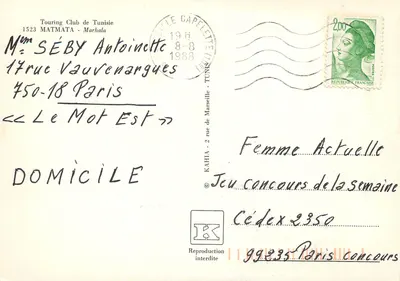 Touring Club de Tunisie
1523 MATMATA - Marhala
Mme SÉBY Antoinette
17 rue Vauvenargues
750-18 Paris
<< Le Mot Est >>
DOMICILE
LE CAPELETTE
19 H
8-8
1988
2,00
REPUBLIQUE FRANÇAISE
© KAHIA - 2 rue de Marseille - TUNIS
K
Reproduction
interdite
Femme Actuelle
Jeu concours de la semaine
Cédex 2350
99235 Paris concours